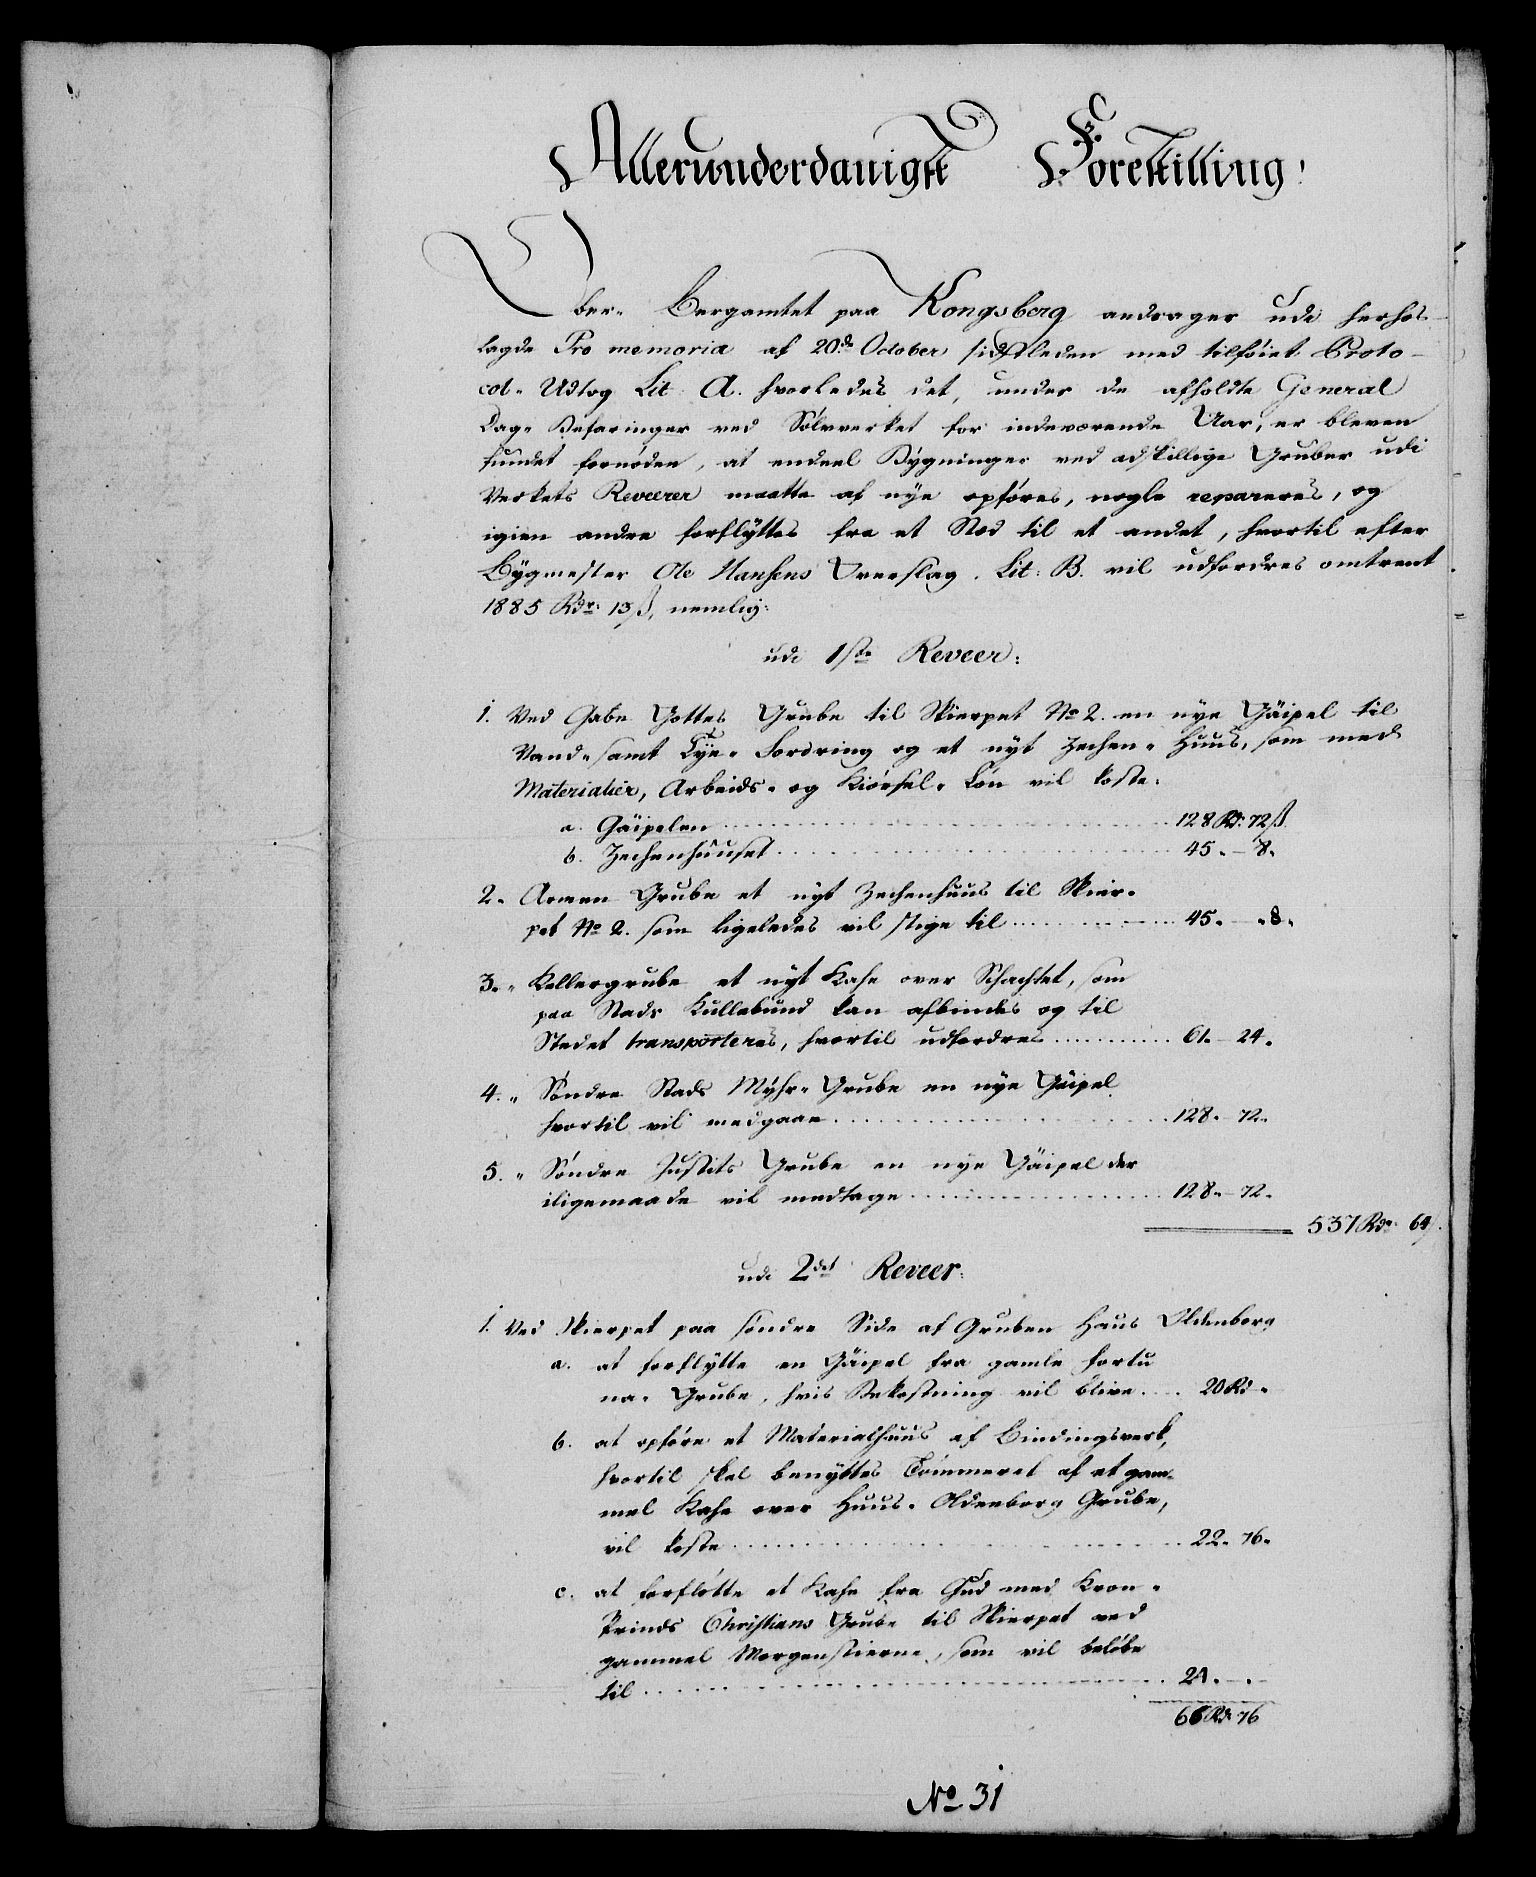 Allerunderdanigst Forestilling!
Ober- Bergamtet paa Kongsberg andrager udi herhos-
lagde Pro memoria af 20de October sidstleden med tilføiet Proto-
col- Udtog Lit. A. hvorledes det, under de afholdte General
Dag- Befaringer ved Sølvverket for indeværende Aar, er bleven
fundet fornøden, at endeel Bÿgninger ved adskillige Gruber udi
Verkets Reveerer maatte af nÿe opføres, nogle repareres, og
igien andre forflÿttes fra et Sted til et andet, hvortil efter
Bÿgmester Ole Hansens Overslag. Lit: B. vil udfordres omtrent
1885 Rdr: 13 ß, nemlig:
udi 1ste Reveer:
1. Ved Gabe Gottes Grube til Skierpet No 2. en nÿe Gäipel til
Vand- samt Tÿe- Fordring og et nÿt Zechen- Huus, som med
Materialier, Arbeids- og Kiørsel- Løn vil koste:
a. Gäipelen 128 Rd: 72 ß
b. Zechenhuuset 45. - 8.
2. Armen Grube et nÿt Zechenhuus til Skier-
pet No 2. som ligeledes vil stige til 45. - 8.
3. " Kellergrube et nÿt Kahe over Schachtet, som
paa Stads Kullebund kan afbindes og til
Stedet transporteres, hvortil udfordres 61. - 24.
4. " Søndre Stads Mÿhr- Grube en nÿe Gäipel
hvortil vil medgaae 128. - 72.
5. " Søndre Justits Grube en nÿe Gäipel der
iligemaade vil medtage 128. - 72.
537 Rdr 64 ß.
udi 2det Reveer:
1. Ved Skierpet paa søndre Side af Gruben Haus Oldenborg
a. at forflÿtte en Gäipel fra gamle Fortu
na- Grube, hvis Bekostning vil blive 20 Rd -
b. at opføre et Materialhuus af Bindingsverk,
hvortil skal benÿttes Tømmeret af et gam-
mel Kahe over Huus- Oldenborg Grube,
vil koste 22. 76.
c. at forflötte et Kahe fra Gud med Kron-
Prinds Christians Grube til Skierpet ved
gammel Morgenstierne, som vil beløbe
til 24. - .
66 Rd 76
No 31